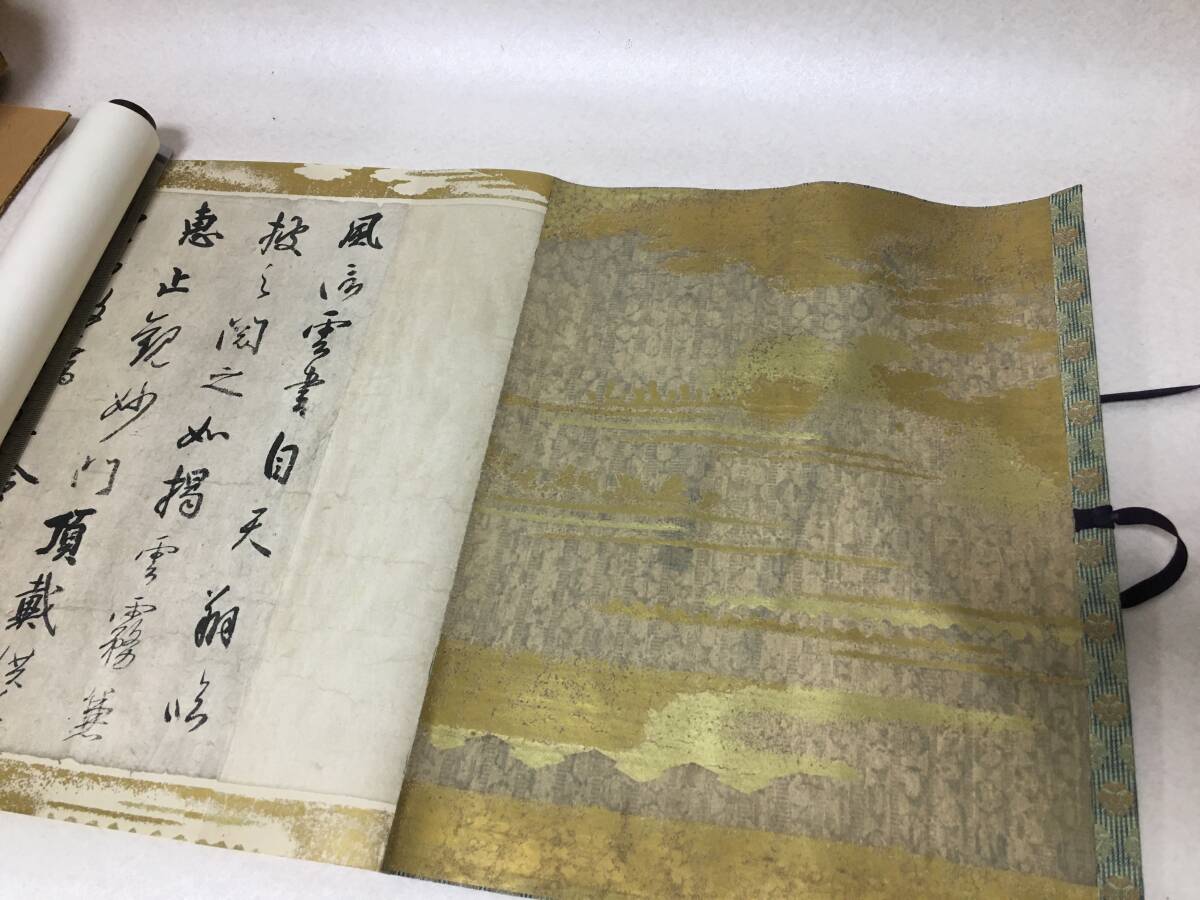 風信雲書自天翔臨
披之閲之如掲雲霧兼
惠止觀妙門頂戴供